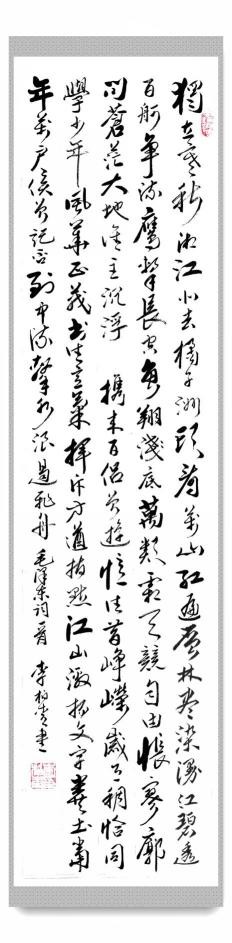 獨立寒秋湘江北去橘子洲頭看萬山紅遍層林盡染漫江碧透
百舸爭流鷹擊長空魚翔淺底萬類霜天競自由悵寥廓
問蒼茫大地誰主沉浮 攜來百侶曾遊憶往昔崢嶸歲月稠恰同
學少年風華正茂書生意氣揮斥方遒指點江山激揚文字糞土當
年萬戶侯曾記否到中流擊水浪遏飛舟 毛澤東詞一首 李